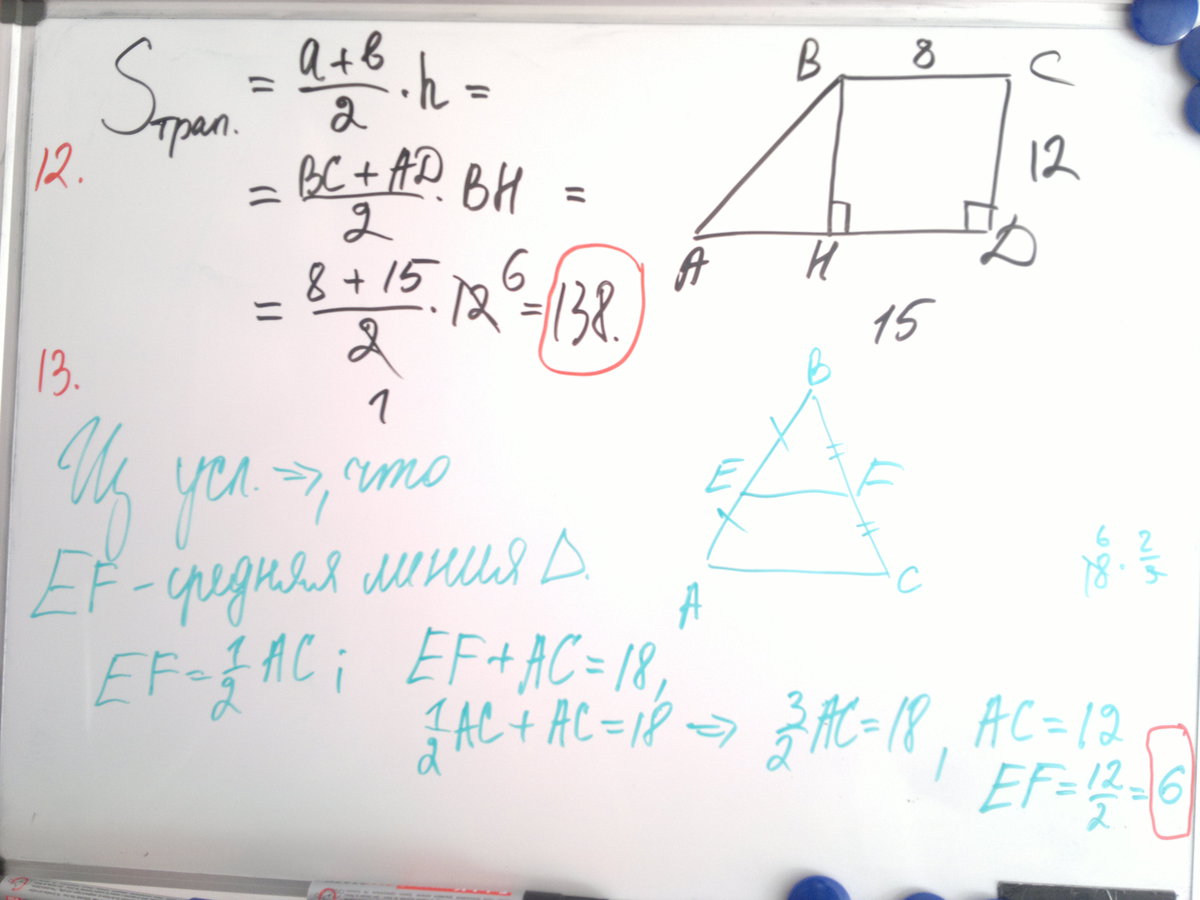 12.
Sтрап. = (a+b)/2 · h =
= (BC + AD)/2 · BH =
= (8 + 15)/2 · 12 6 = 138.
1
B 8 C
12
A H D
15
13.
Из усл. ⇒, что
EF - средняя линия Δ.
B
E F
A C
6 2
18 · 3
EF = 1/2 AC; EF + AC = 18,
1/2 AC + AC = 18 ⇒ 3/2 AC = 18, AC = 12
EF = 12/2 = 6